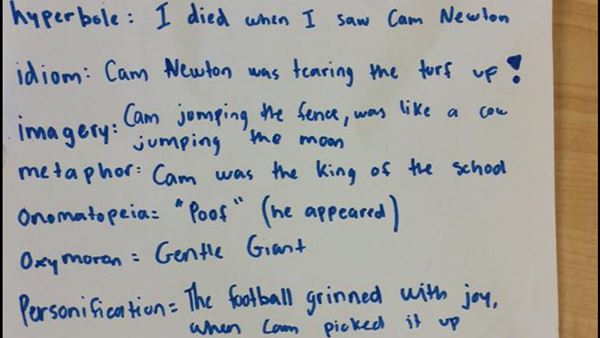 hyperbole: I died when I saw Cam Newton
idiom: Cam Newton was tearing the turf up!
imagery: Cam jumping the fence, was like a cow
jumping the moon
metaphor: Cam was the king of the school
Onomatopeia= "Poof" (he appeared)
Oxymoron = Gentle Giant
Personification= The football grinned with joy,
when Cam picked it up